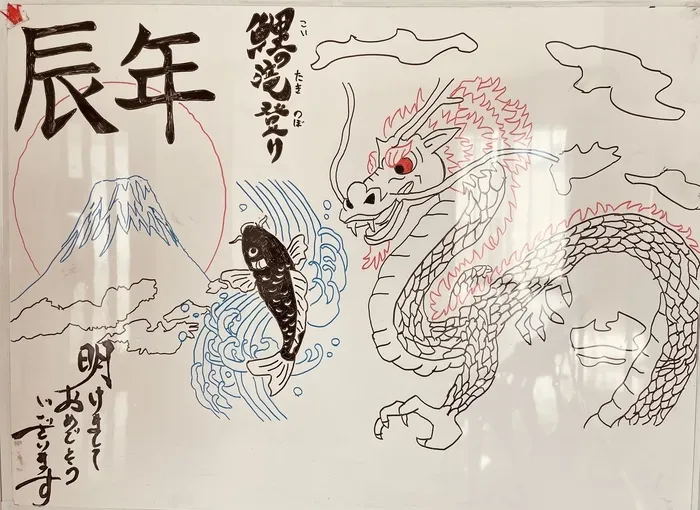 辰年
鯉の滝登り
こい
たき
のぼ
明けまして
おめでとう
ございます